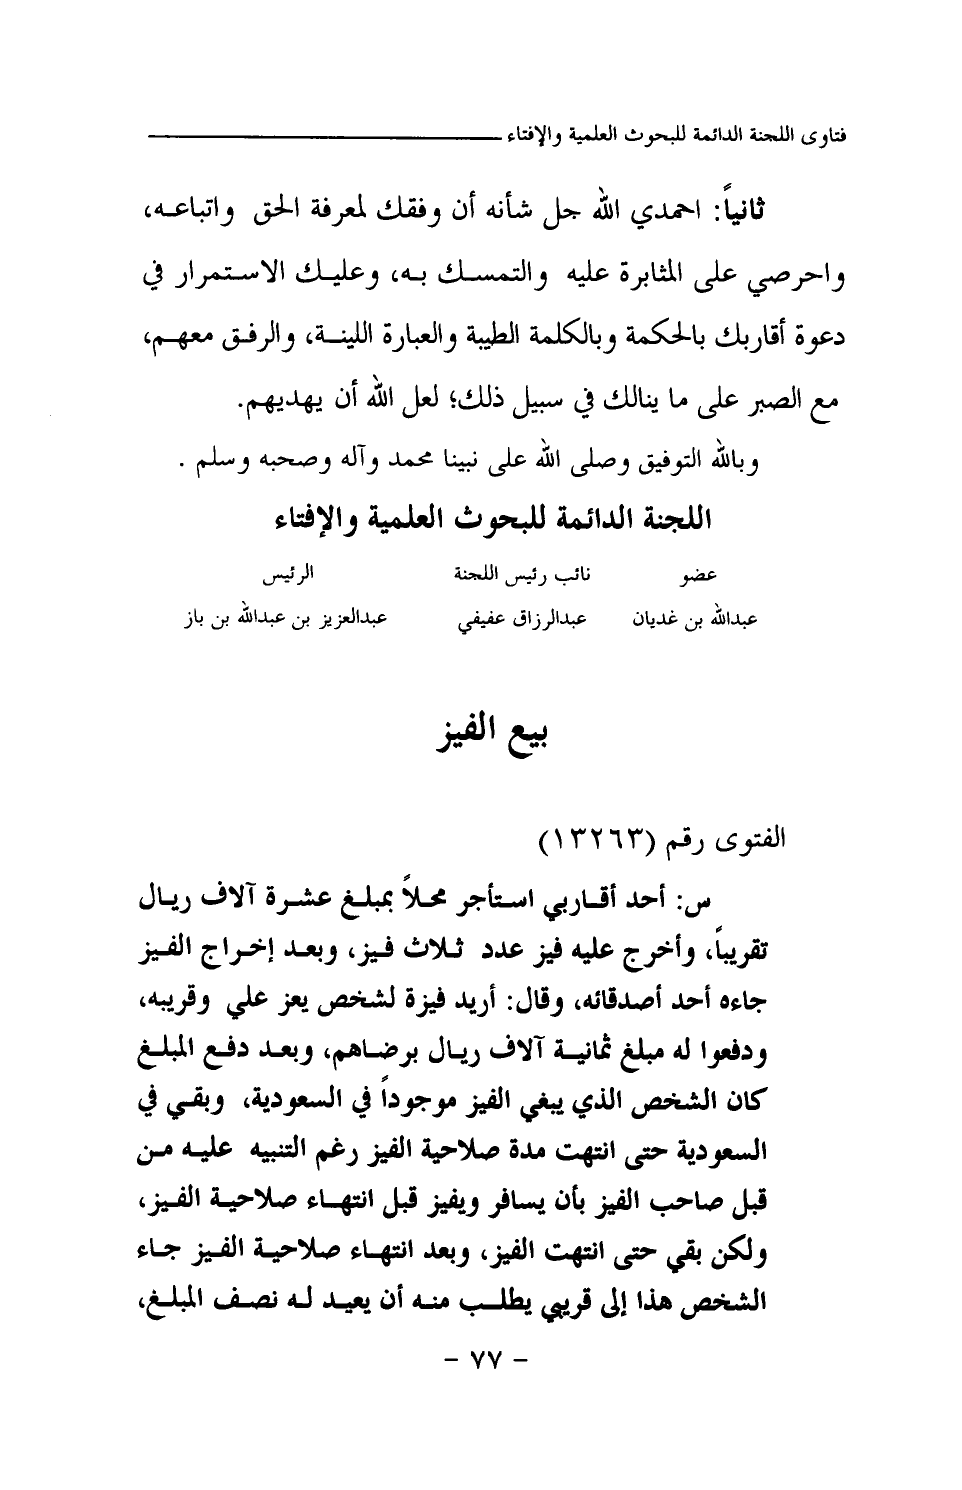 فتاوى اللجنة الدائمة للبحوث العلمية والإفتاء
ثانياً: احمدي الله جل شأنه أن وفقك لمعرفة الحق واتباعه،
واحرصي على المثابرة عليه والتمسك به، وعليك الاستمرار في
دعوة أقاربك بالحكمة وبالكلمة الطيبة والعبارة اللينة، والرفق معهم،
مع الصبر على ما ينالك في سبيل ذلك؛ لعل الله أن يهديهم.
وبالله التوفيق وصلى الله على نبينا محمد وآله وصحبه وسلم .
اللجنة الدائمة للبحوث العلمية والإفتاء
عضو نائب رئيس اللجنة الرئيس
عبدالله بن غديان عبدالرزاق عفيفي عبدالعزيز بن عبدالله بن باز
بيع الفيز
الفتوى رقم (١٣٢٦٣)
س: أحد أقاربي استأجر محلاً بمبلغ عشرة آلاف ريال
تقريباً، وأخرج عليه فيز عدد ثلاث فيز، وبعد إخراج الفيز
جاءه أحد أصدقائه، وقال: أريد فيزة لشخص يعز علي وقريبه،
ودفعوا له مبلغ ثمانية آلاف ريال برضاهم، وبعد دفع المبلغ
كان الشخص الذي يبغي الفيز موجوداً في السعودية، وبقي في
السعودية حتى انتهت مدة صلاحية الفيز رغم التنبيه عليه من
قبل صاحب الفيز بأن يسافر ويفيز قبل انتهاء صلاحية الفيز،
ولكن بقي حتى انتهت الفيز، وبعد انتهاء صلاحية الفيز جاء
الشخص هذا إلى قريبي يطلب منه أن يعيد له نصف المبلغ،
- ٧٧ -